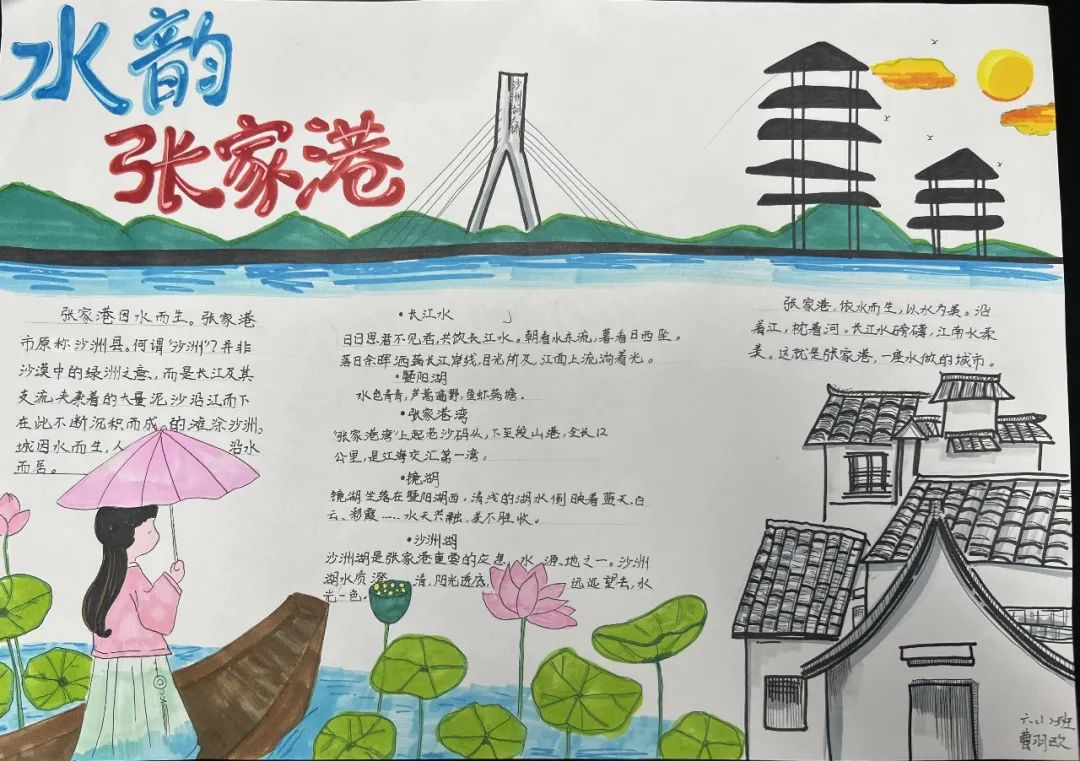 水韵
张家港
张家港因水而生。张家港
市原称沙洲县。何谓“沙洲”?并非
沙漠中的绿洲之意,而是长江及其
支流夹来着的大量泥沙沿江而下
在此不断沉积而成的滩涂沙洲。
城因水而生,人 沿水
而居。
·长江水
日日思君不见君,共饮长江水。朝看水东流,暮看日西坠。
落日余晖洒满长江岸线,目光所及,江面上流淌着光。
·暨阳湖
水色青青,芦蒿遍野,鱼虾满塘。
·张家港湾
“张家港湾”上起老沙码头,下至段山港,全长12
公里,是江海交汇第一湾。
·镜湖
镜湖坐落在暨阳湖西,清浅的湖水倒映着蓝天、白
云、彩霞……水天共融,美不胜收。
·沙洲湖
沙洲湖是张家港重要的应急 水 源 地之一。沙洲
湖水质澄 清,阳光透底, 远远望去,水
光一色。
张家港,依水而生,以水为美。沿
着江,枕着河。长江水磅礴,江南水柔
美。这就是张家港,一座水做的城市。
六(1)班
曹羽欣